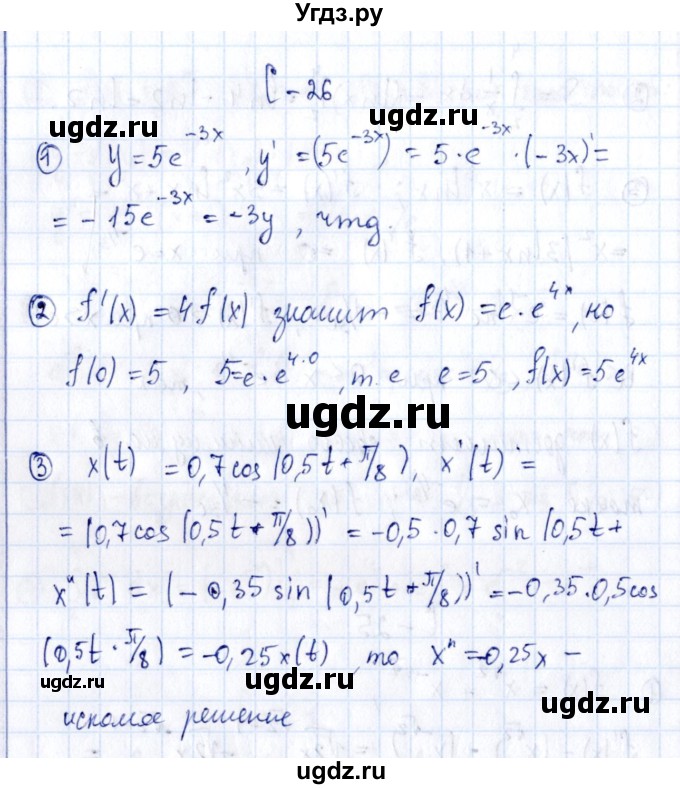 Угдз.ру
С-26
ugdz.ru ugdz.ru
① y = 5e^{-3x}, y' = (5e^{-3x})' = 5·e^{-3x}·(-3x)' =
= -15e^{-3x} = -3y, чтд.
ugdz.ru ugdz.ru
② f'(x) = 4f(x) значит f(x) = c·e^{4x}, но
f(0) = 5, 5=c·e^{4·0}, т.е c=5, f(x)=5e^{4x}
ugdz.ru
③ x(t) = 0,7cos(0,5t+π/8), x'(t) =
= (0,7cos(0,5t+π/8))' = -0,5·0,7 sin(0,5t+
x"(t) = (-0,35 sin(0,5t+π/8))' = -0,35·0,5cos
ugdz.ru ugdz.ru
(0,5t·π/8) = -0,25x(t) то x"=-0,25x -
ugdz.ru
искомое решение
ugdz.ru ugdz.ru
ugdz.ru